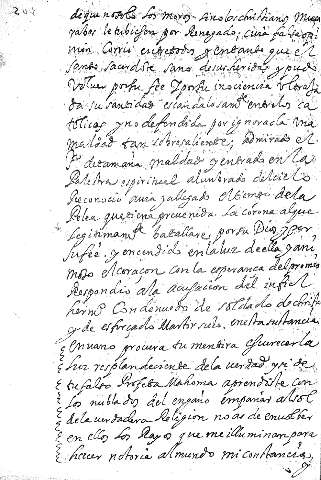 de que no solo los moros, sino los christianos Muza
rabes le tubiesen por Renegado, cuia falsa opi
nion Corrió en todos y en tanto que el
Santo Sacerdote sano de sus heridas y pudo
volver por su feè y por su inocencia ultrajada
da su santidad escandalosamte entre los ca
tolicos y no defendida por ignorarla Vna
maldad tan sobresaliente, admirado el
Sto de tamaña maldad y entrado en la
Palestra espiritual alumbrado del cielo
Reconociò auia llegado el tiempo de la
Pelea que tenia prevenida La corona al que
Legitimamte batallare por su Dios, y por
su feè, y encendido en la luz de ella y ani
mado el coraçon con la esperança del premio
Respondio a la acusacion del infiel
hermo Con denuedo de soldado de christo
y de esforçado Martir suio, en esta sustancia
En vano procura tu mentira escurecer la
Luz resplandeciente de la verdad y si de
tu falso Profeta Mahoma aprendiste con
los nublados del engaño empañar al sol
de la verdadera Religion no as de envolver
en ellos los Rayos que me iluminan para
hacer notoria al mundo mi constancia,